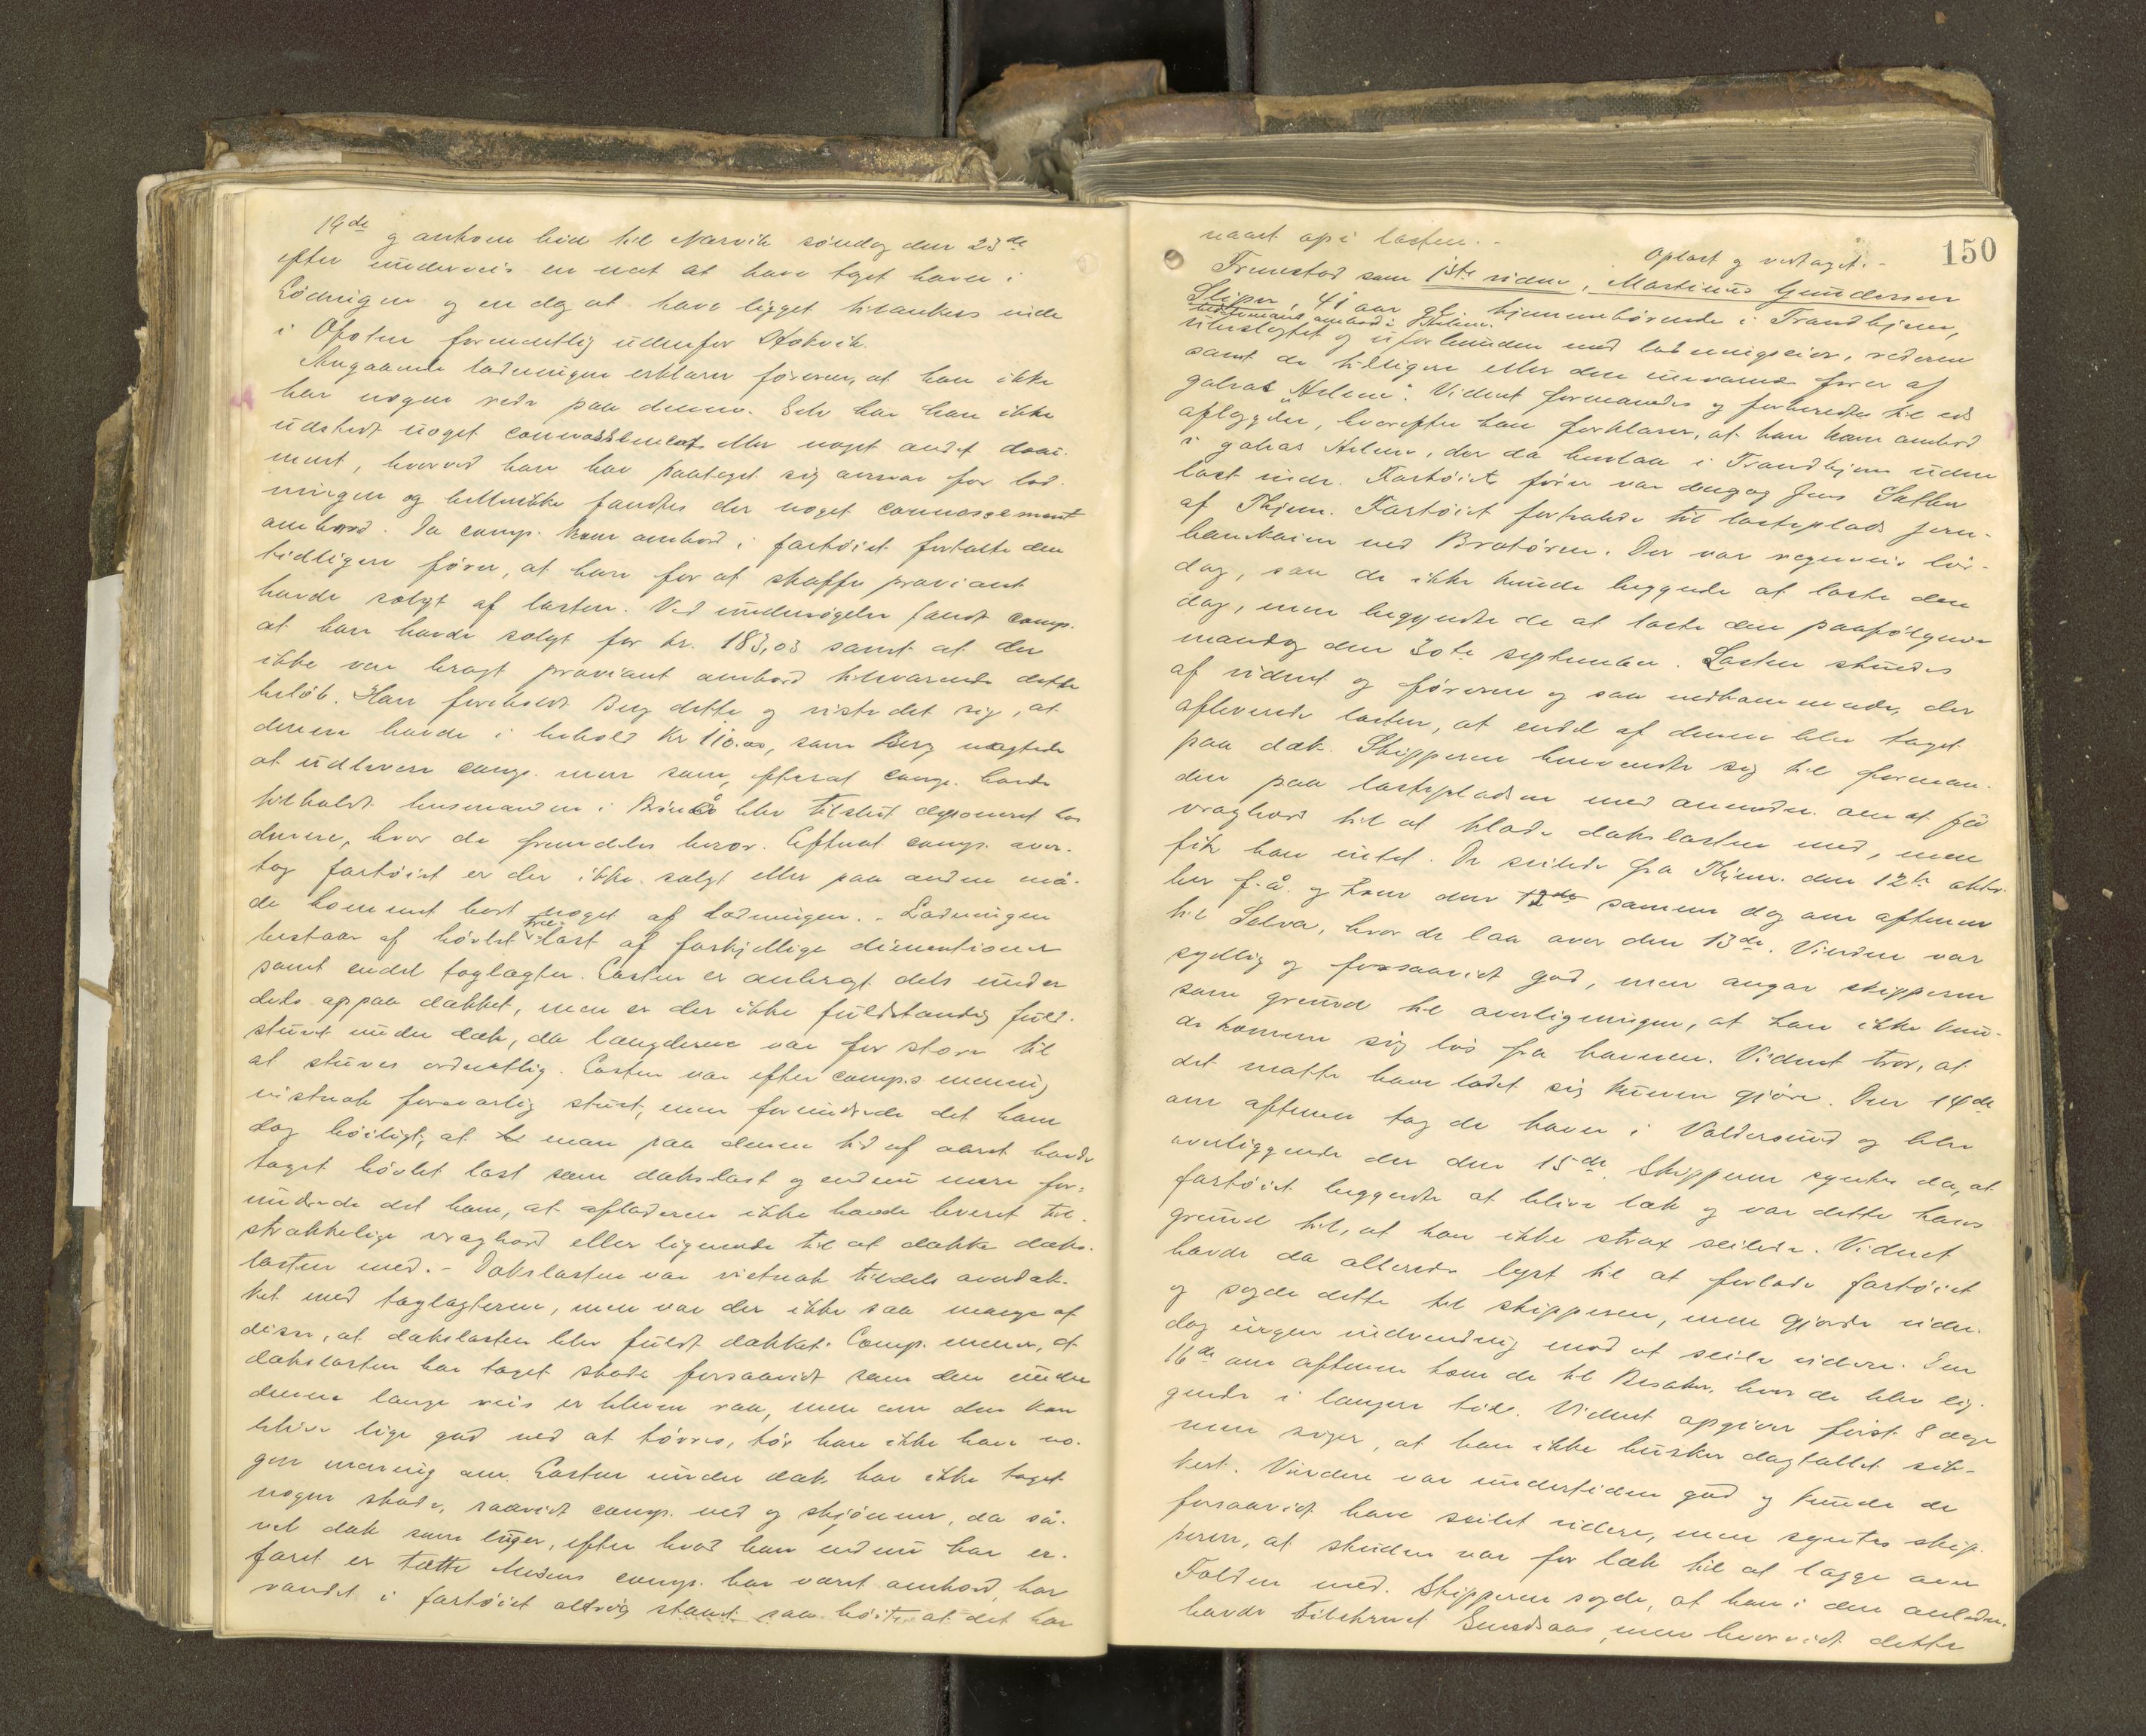 19de og ankom hid til Narvik söndag den 23de
efter underveis en nat at have taget havn i
Lödingen og en dag at have ligget tilankers inde
i Ofoten formentlig udenfor
Angaaende ladningen erklærer föreren, at han ikke
har nogen rede paa denne. Selv har han ikke
udstedt noget connossement eller noget andet docu-
ment, hvorved han har paataget sig ansvar for lad-
ningen og hellerikke fandtes der noget connossement
ombord. Da comp. kom ombord i fartöiet fortalte den
tidligere förer, at han for at skaffe proviant
havde solgt af lasten. Ved undersögelse fandt comp.
at han havde solgt for kr. 183,03 samt at der
ikke var bragt proviant ombord tilsvarende dette
belöb. Han foreholdt Berg dette og viste det sig, at
denne havde i behold Kr 110.00, som Berg nægtede
at udlevere comp. men som, efterat comp. havde
tilholdt lensmanden i blev tilslut deponeret hos
denne, hvor de fremdeles beror. Efterat comp. over-
tog fartöiet er der ikke solgt eller paa anden må-
de kommet bort noget af ladningen. - Ladningen
bestaar af hövlet trælast af forskjellige dimentioner
samt endel taglægter. Lasten er anbragt dels under
dels oppaa dækket, men er der ikke fuldstændig fuld-
stuet under dæk, da længderne var for store til
at stuves ordentlig. Lasten var efter comp.s mening
vistnok forsvarlig stuet, men forundrede det ham
dog höiligt, at man paa denne tid af aaret havde
taget hövlet last som dækslast og endnu mere for-
undrede det ham, at afladeren ikke havde leveret til-
strækkelige vragbord eller lignende til at dække dæks-
lasten med. - Dækslasten var vistnok tildels overdæk-
ket med taglægterne, men var der ikke saa mange af
disse, at dækslasten blev fuldt dækket. Comp. mener, at
dækslasten har taget skade forsaavidt som den under
denne lange reis er bleven vaa, men om den kan
blive lige god ved at törres, tör han ikke have no-
gen mening om. Lasten under dæk har ikke taget
nogen skade, saavidt comp. ved og skjönner, da så-
vel dæk som luger, efter hvad han endnu har er-
faret er tætte. Medens comp. har været ombord, har
vandet i fartöiet aldrig staaet saa höit, at det har
150
naaet op i lasten. -
Oplæst og vedtaget. -
Fremstod som 1ste vidne, Martinus Gundersen
Sliper, 41 aar gl., hjemmehörende i Trondhjem,
ombord i Helene.
ubeslægtet og uforbunden med ladningseier, rederen
samt de tidligere eller den nuværende förer af
galeas "Helene". Vidnet formanedes og forberedtes til eds
aflæggelse, hvorefter han forklarer, at han kom ombord
i galeas Helene, der da henlaa i Trondhjem uden
last inde. Fartöiets förer var dengang Jens
af Thjem. Fartöiet forhalede til lasteplads jern-
banekaien ved Bratören. Der var regnveir lör-
dag, saa de ikke kunde begynde at laste den
dag, men begyndte de at laste den paafölgende
mandag den 30te september. Lasten stuedes
af vidnet og föreren og saa vedkommende, der
afleverede lasten, at endel af denne blev taget
paa dæk. Skipperen henvendte sig til forman-
den paa lastepladsen med anmoden om at få
vragbord til at klæde dækslasten med, men
fik han intet. De seilede fra Thjem. den 12te okto-
ber f.å. og kom den samme dag om aftenen
til Selva, hvor de laa over den 13de. Vinden var
sydlig og forsaavidt god, men angav skipperen
som grund til overligningen, at han ikke kun-
de komme sig lös fra havnen. Vidnet tror, at
det maatte have ladet sig kunne gjöre. Den 14de
om aftenen tog de havn i Valdersund og blev
overliggende der den 15de. Skipperen syntes da, at
fartöiet begyndte at blive læk og var dette hans
grund til, at han ikke strax seilede. Vidnet
havde da allerede lyst til at forlade fartöiet
og sagde dette til skipperen, men gjorde viden-
dog ingen indvending mod at seile videre. Den
16de om aftenen kom de til Besaker, hvor de blev lig-
gende i længere tid. Vidnet opgiver först 8 dage
men siger, at han ikke husker dagtallet sik-
kert. Vinden var undertiden god og kunde de
forsaavidt have seilet videre, men syntes skip-
peren, at skuden var for læk til at lægge over
Folden med. Skipperen sagde, at han i den anledn.
havde tilskrevet, men hvorvidt dette